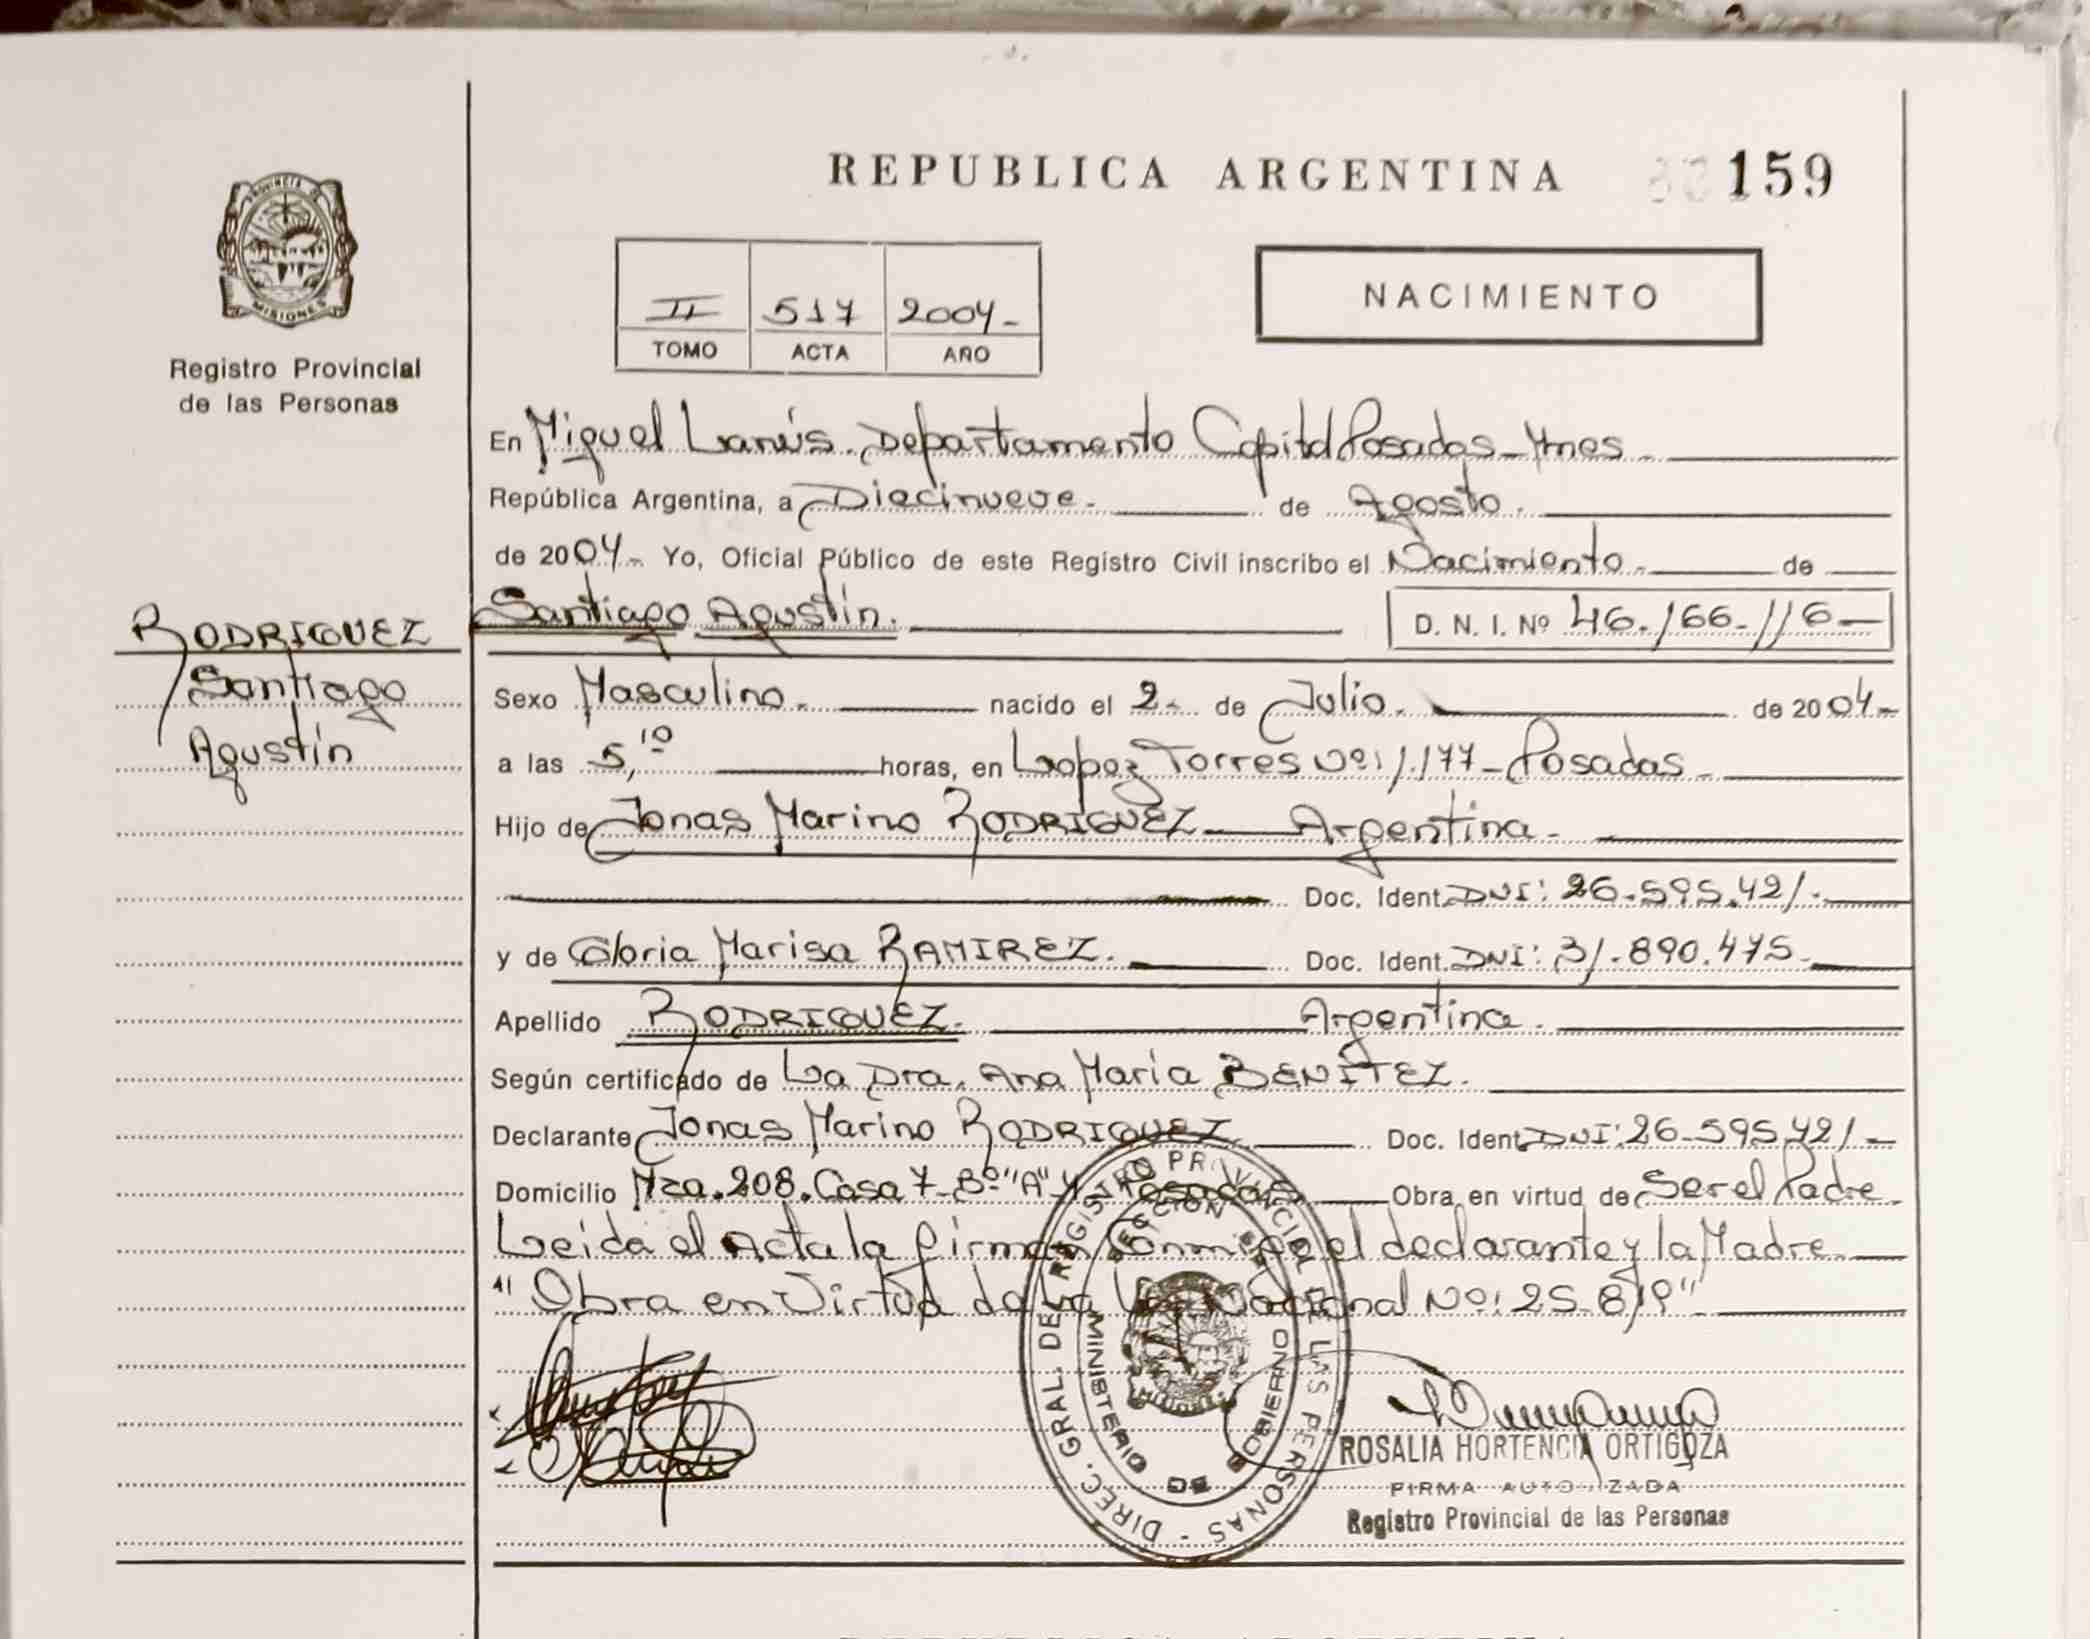 REPUBLICA ARGENTINA 159
PROVINCIA DE
MISIONES
Registro Provincial
de las Personas
II 517 2004-
TOMO ACTA AÑO
NACIMIENTO
En Miguel Lanús. Departamento Capital Posadas-Mnes
República Argentina, a Diecinueve.- de Agosto.
de 2004- Yo, Oficial Público de este Registro Civil inscribo el Nacimiento. de
Santiago Agustín. D. N. I. Nº 46.166.116-
RODRIGUEZ
Santiago
Agustín
Sexo Masculino. nacido el 2- de Julio. de 2004-
a las 5,10 horas, en Lopez Torres Nº: 1.177-Posadas-
Hijo de Jonas Marino RODRIGUEZ Argentina-
Doc. Ident. DNI: 26.595.421-
y de Gloria Marisa RAMIREZ. Doc. Ident. DNI: 31.890.475-
Apellido RODRIGUEZ. Argentina.
Según certificado de La Dra. Ana María BENITEZ.
Declarante Jonas Marino RODRIGUEZ Doc. Ident. DNI: 26-595.421-
Domicilio Mza.208.Casa 7-Bº"A" Posadas Obra en virtud de Ser el Padre
Leida el Acta la firman conmigo el declarante y la Madre
"Obra en Virtud de La Ley Nacional Nº: 25.819"
DIREC. GRAL. DEL REGISTRO PROVINCIAL DE LAS PERSONAS -
MINISTERIO DE GOBIERNO
ROSALIA HORTENCIA ORTIGOZA
FIRMA AUTORIZADA
Registro Provincial de las Personas